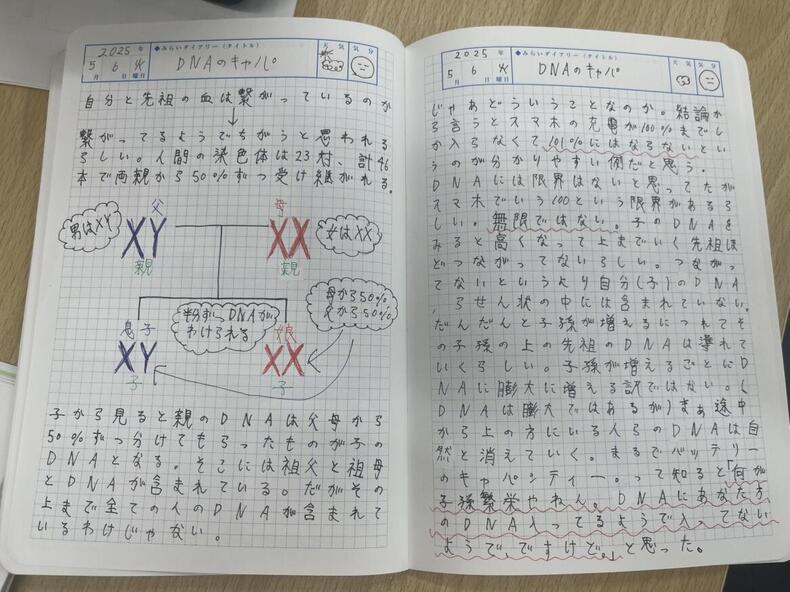 2025年
5月6日火曜日
◆みらいダイアリー(タイトル)
DNAのキャパ
天気 気分
自分と先祖の血は繋がっているのか
↓
繋がってるようでちがうと思われる
らしい。人間の染色体は23対、計46
本で両親から50%ずつ受け継がれる。
男はXY
父
XY
親
母
XX
親
女はXX
半分ずつDNAが
わけられる
母から50%
父から50%
息子
XY
子
娘
XX
子
子から見ると親のDNAは父母から
50%ずつ分けてもらったものが子の
DNAとなる。そこには祖父と祖母
とDNAが含まれている。だがその
上まで全ての人のDNAが含まれて
いるわけじゃない。
2025年
5月6日火曜日
◆みらいダイアリー(タイトル)
DNAのキャパ
天気 気分
じゃあどういうことなのか。結論か
ら言うとスマホの充電が100%までし
か入らなくて101%にはならないとい
うのが分かりやすい例だと思う。
DNAには限界はないと思ってたが
スマホでいう100という限界があるら
しい。無限ではない。子のDNAを
みると高くなって上までいく先祖ほ
どつながってないらしい。つながっ
てないというより自分(子)のDNA
、らせん状の中には含まれていない。
だんだんと子孫が増えるにつれてそ
の子孫の上の先祖のDNAは薄れて
いくらしい。子孫が増えるごとにD
NAに膨大に増える訳ではない。(
DNAは膨大ではあるが)まぁ途中
から上の方にいる人らのDNAは自
然と消えていく。まるでバッテリー
のキャパシティー。って知ると「何が
子孫繁栄やねん。DNAにあなた方
のDNA入ってるようで入ってない
ようで、ですけど。」と思った。